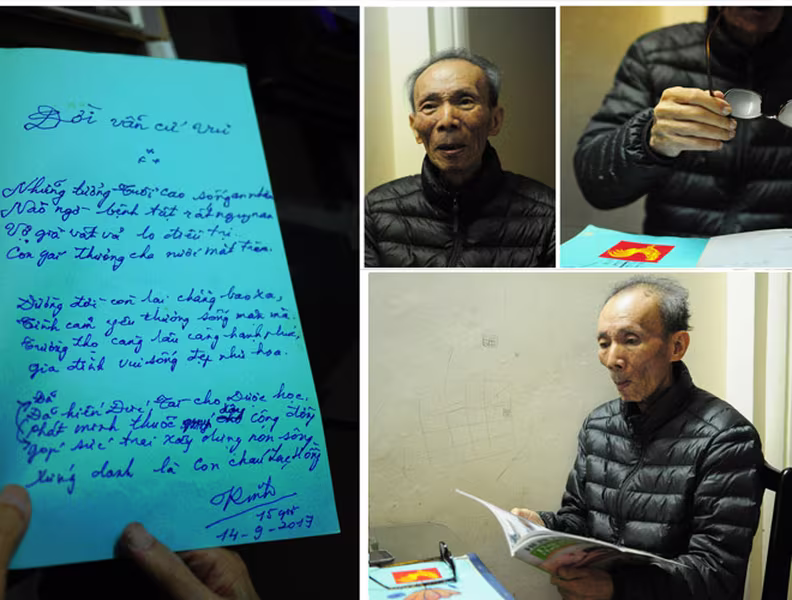 Đời vẫn cứ vui
Những tưởng tuổi cao sống an nhàn
Nào ngờ bệnh tật rất nguy nan
Vợ già vất vả lo điều trị...
Con gái thương cha nước mắt tràn.
Đường đời còn lại chẳng bao xa,
Tình cảm yêu thương sống mặn mà.
Trường thọ càng lâu càng hạnh phúc,
gia đình vui sống đẹp như hoa.
Đã
Đã hiến Đức, Tài cho Dược học,
phát minh thuốc quý công
góp sức trai xây dựng non sông
Xứng danh là con cháu Lạc Hồng
15 giờ
14-9-2017